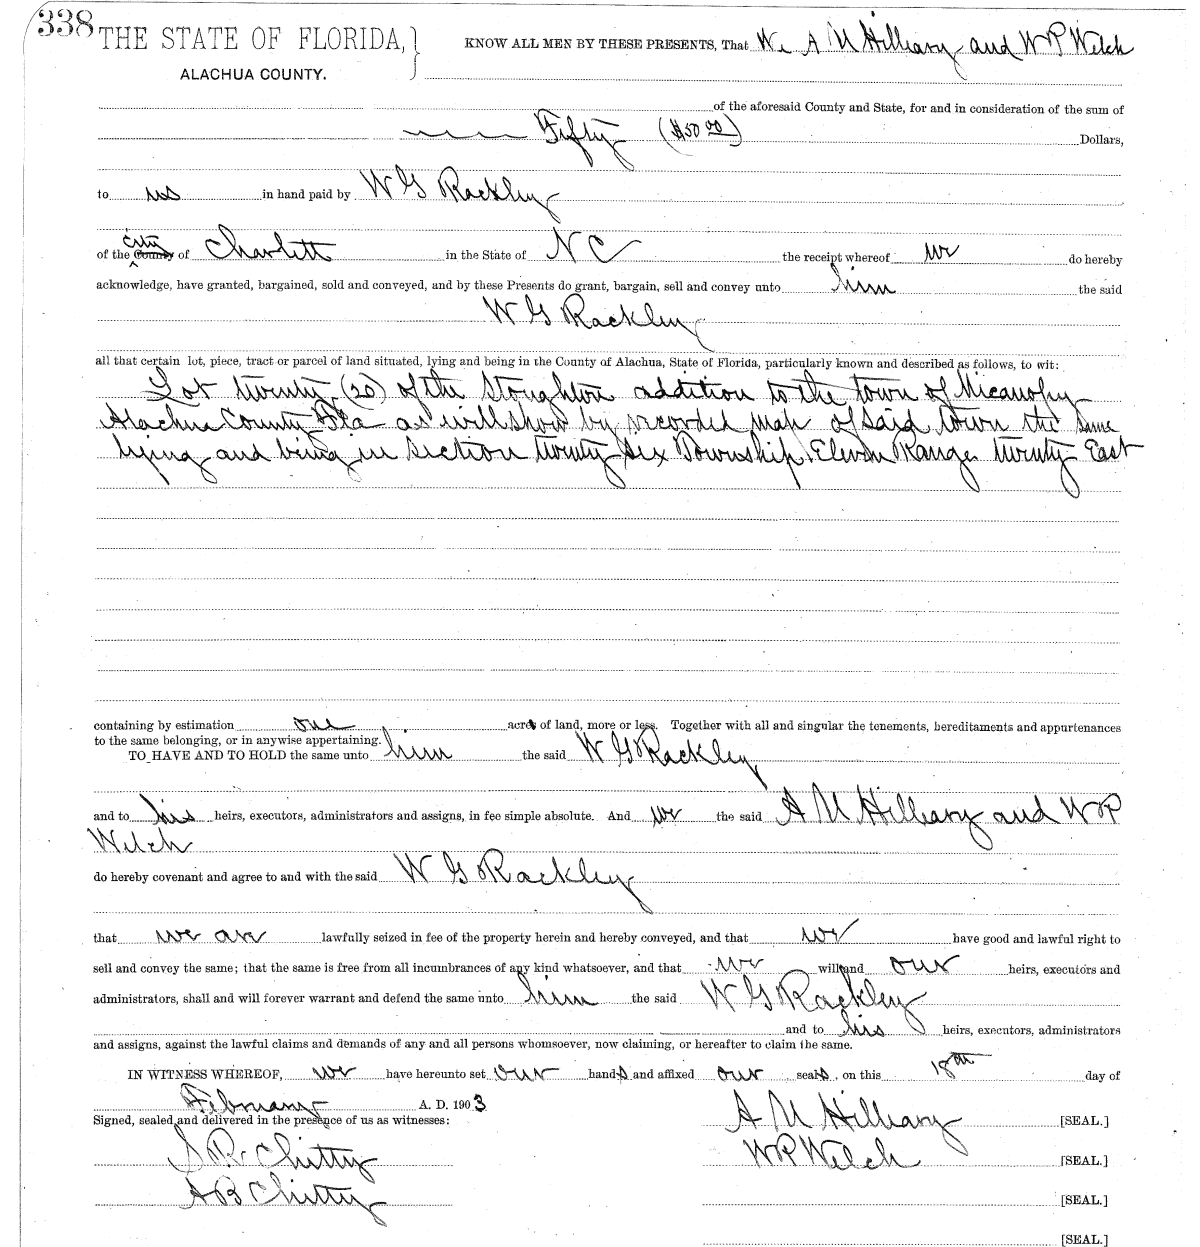 338 THE STATE OF FLORIDA, KNOW ALL MEN BY THESE PRESENTS, That We A M Hilleary and W P Welch
ALACHUA COUNTY.
of the aforesaid County and State, for and in consideration of the sum of
Fifty ($50 00) Dollars,
to us in hand paid by W G Rackley
city
of the County of Charlott in the State of N C the receipt whereof we do hereby
acknowledge, have granted, bargained, sold and conveyed, and by these Presents do grant, bargain, sell and convey unto him the said
W G Rackley
all that certain lot, piece, tract or parcel of land situated, lying and being in the County of Alachua, State of Florida, particularly known and described as follows, to wit:
Lot twenty (20) of the Stoughton addition to the town of Micanopy
Alachua County Fla as will show by recorded map of said town the same
lying and being in section twenty six Township Eleven Range twenty East
containing by estimation one acre of land, more or less. Together with all and singular the tenements, hereditaments and appurtenances
to the same belonging, or in anywise appertaining.
TO HAVE AND TO HOLD the same unto him the said W G Rackley
and to his heirs, executors, administrators and assigns, in fee simple absolute. And we the said A M Hilleary and W P
Welch
do hereby covenant and agree to and with the said W G Rackley
that we are lawfully seized in fee of the property herein and hereby conveyed, and that we have good and lawful right to
sell and convey the same; that the same is free from all incumbrances of any kind whatsoever, and that we will and our heirs, executors and
administrators, shall and will forever warrant and defend the same unto him the said W G Rackley
and to his heirs, executors, administrators
and assigns, against the lawful claims and demands of any and all persons whomsoever, now claiming, or hereafter to claim the same.
IN WITNESS WHEREOF, we have hereunto set our hands and affixed our seals, on this 18th day of
February A. D. 1903
Signed, sealed and delivered in the presence of us as witnesses: A M Hilleary [SEAL.]
S R Chitty W P Welch [SEAL.]
A B Chitty [SEAL.]
[SEAL.]